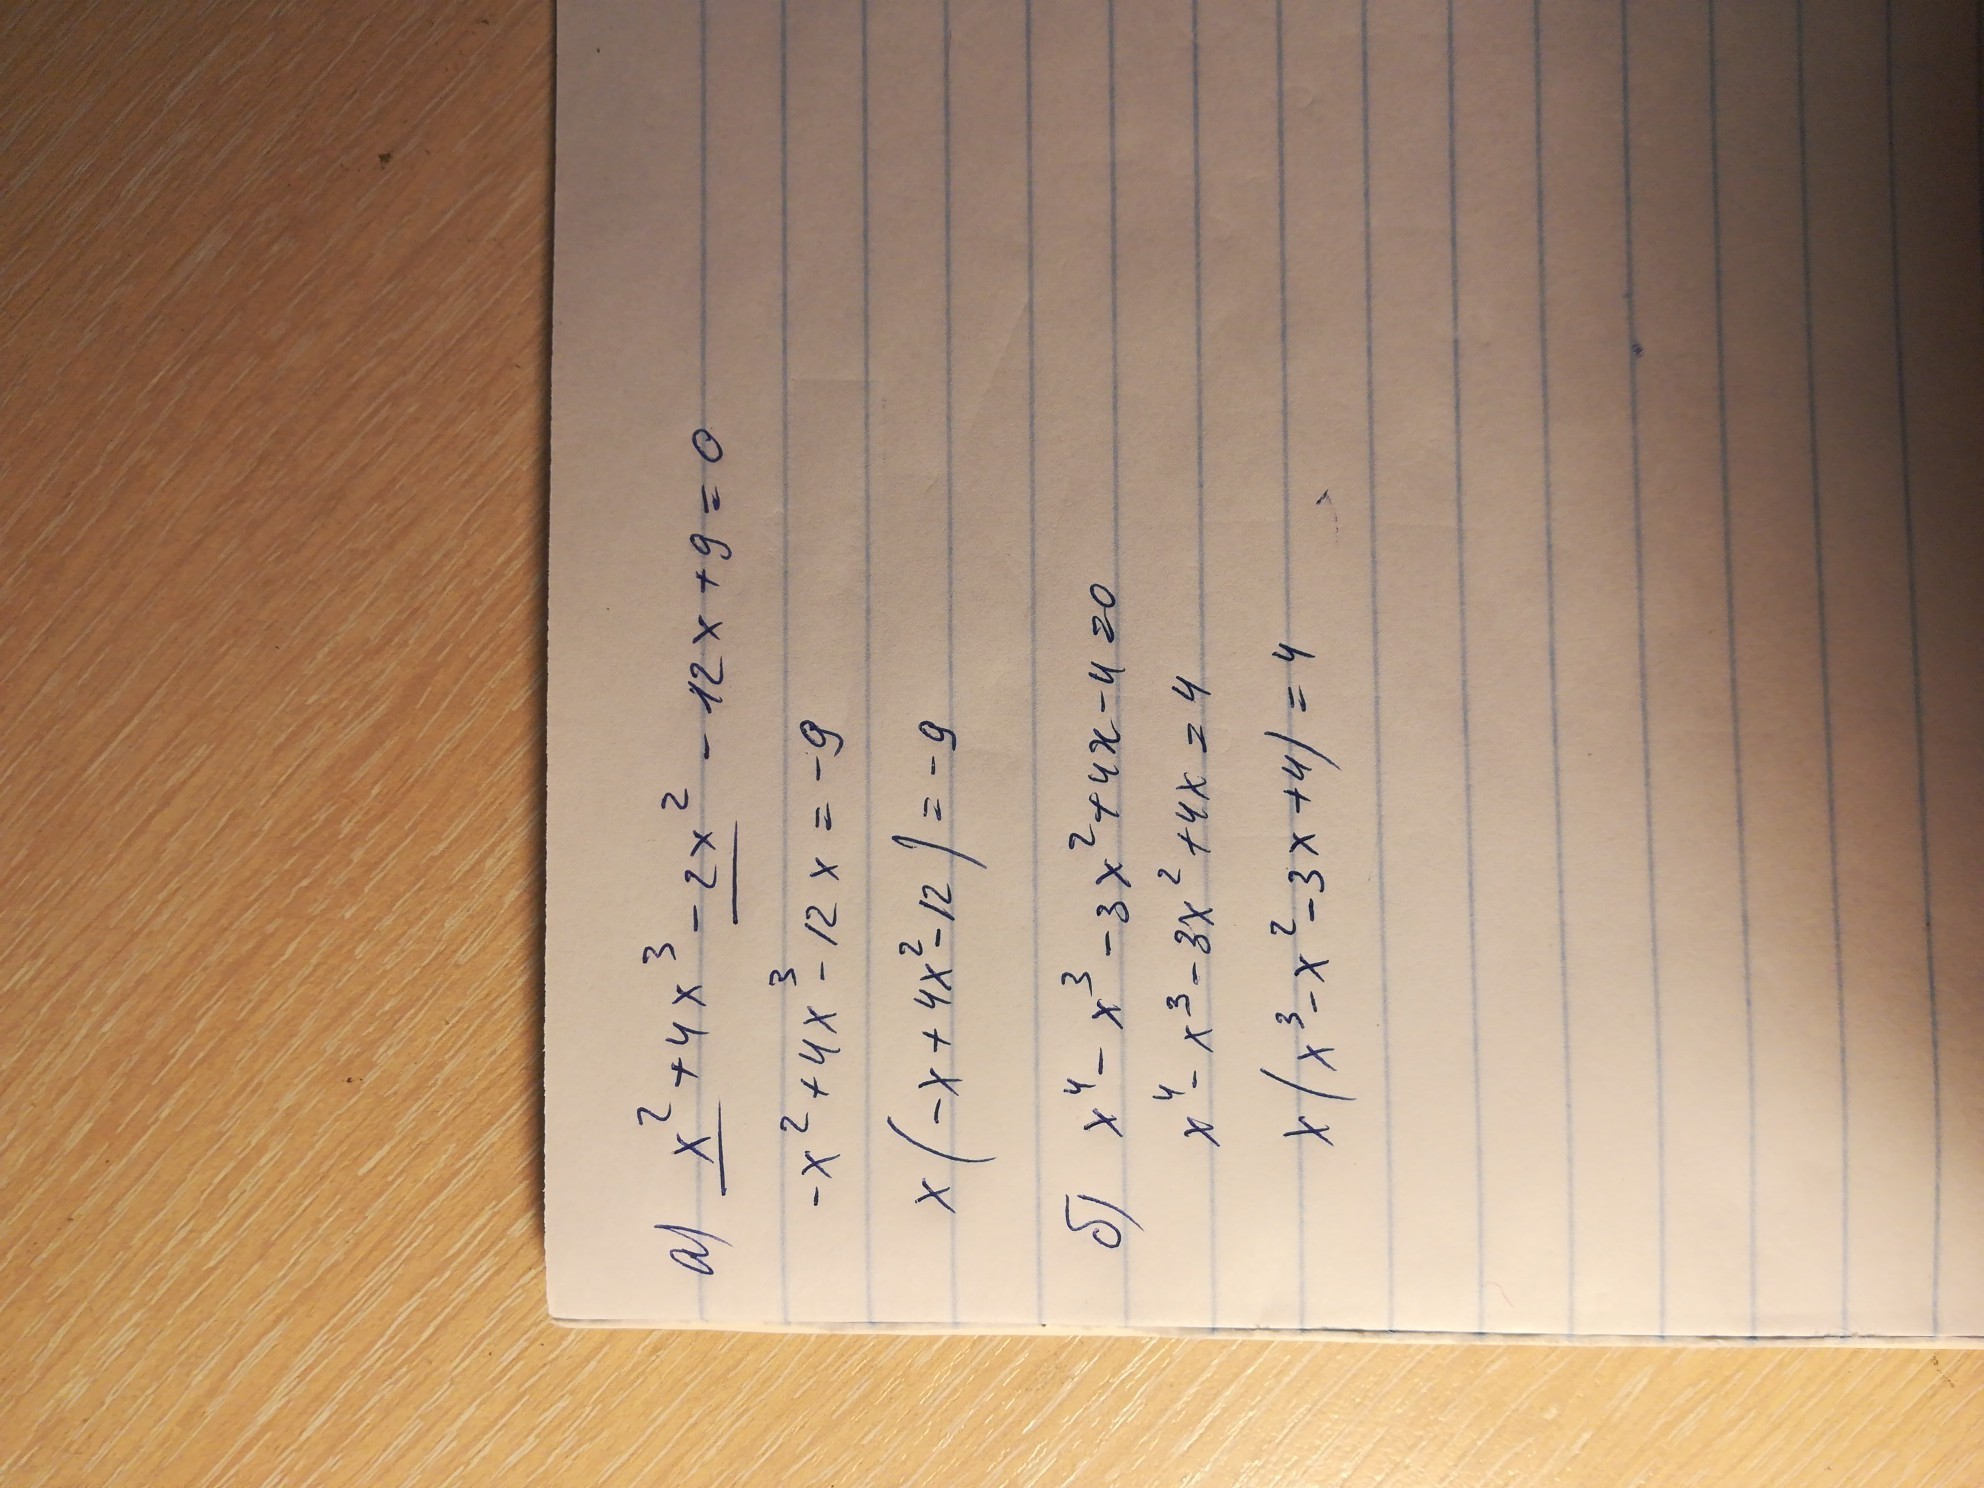 а) x² + 4x³ - 2x² - 12x + 9 = 0
-x² + 4x³ - 12x = -9
x(-x + 4x² - 12) = -9
б) x⁴ - x³ - 3x² + 4x - 4 = 0
x⁴ - x³ - 3x² + 4x = 4
x(x³ - x² - 3x + 4) = 4